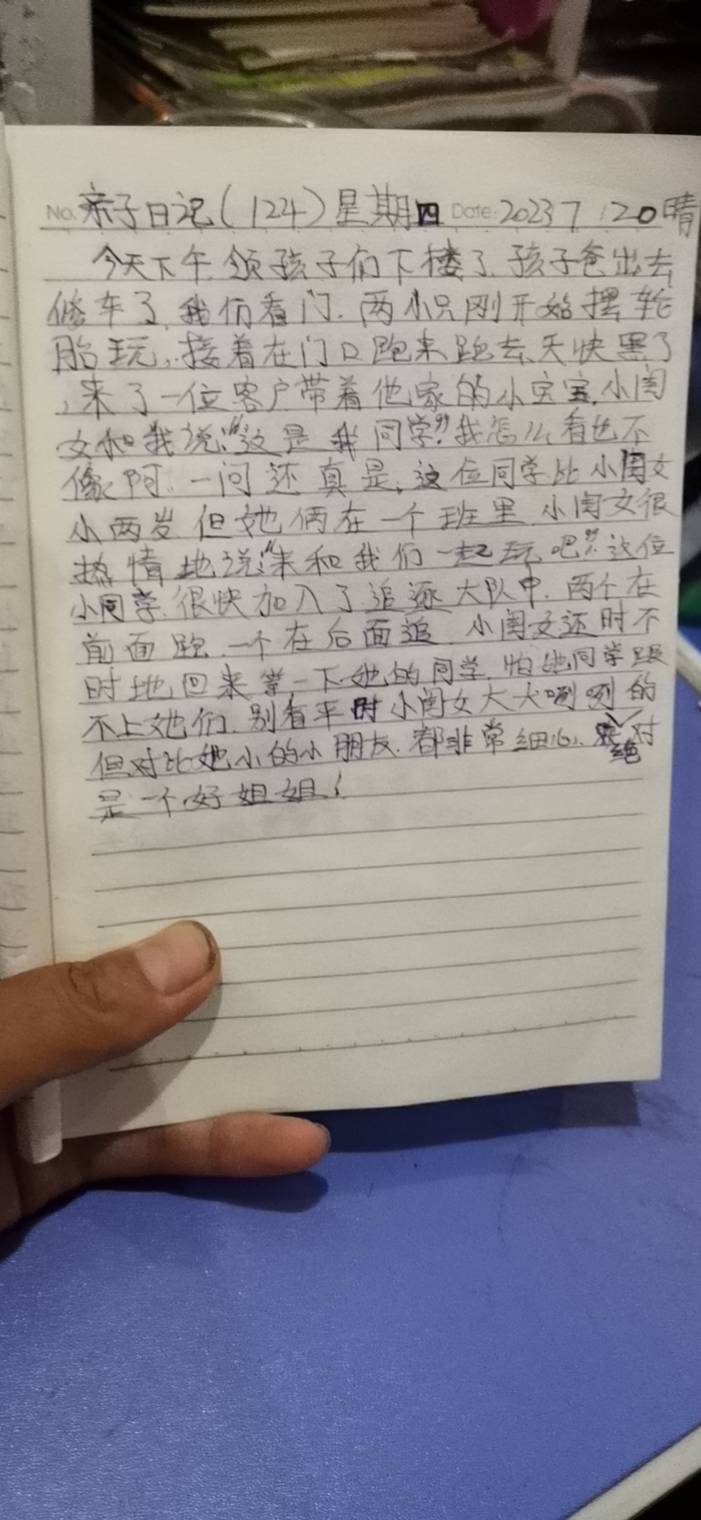 No. 亲子日记(124)星期四 Date: 2023 7 20晴
今天下午.领孩子们下楼了.孩子爸出去
修车了.我们看门.两小只刚开始摆轮
胎玩,接着在门口跑来跑去.天快黑了
,来了一位客户带着他家的小宝宝.小闺
女和我说:“这是我同学”!我怎么看也不
像阿.一问还真是,这位同学比小闺女
小两岁但她俩在一个班里.小闺女很
热情地说:“来和我们一起玩吧”!这位
小同学.很快加入了追逐大队中.两个在
前面跑.一个在后面追.小闺女还时不
时地回来等一下她的同学.怕她同学跟
不上她们.别看平时小闺女大大咧咧的
但对比她小的小朋友.都非常细心.绝对
是一个好姐姐!